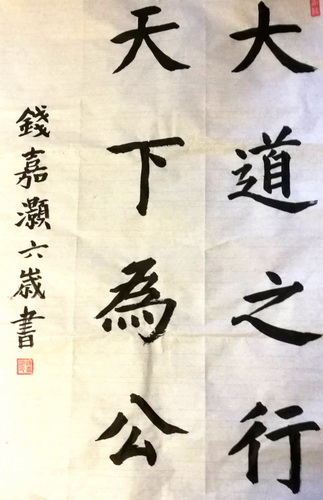 大道之行
天下為公
錢嘉灝六歲書